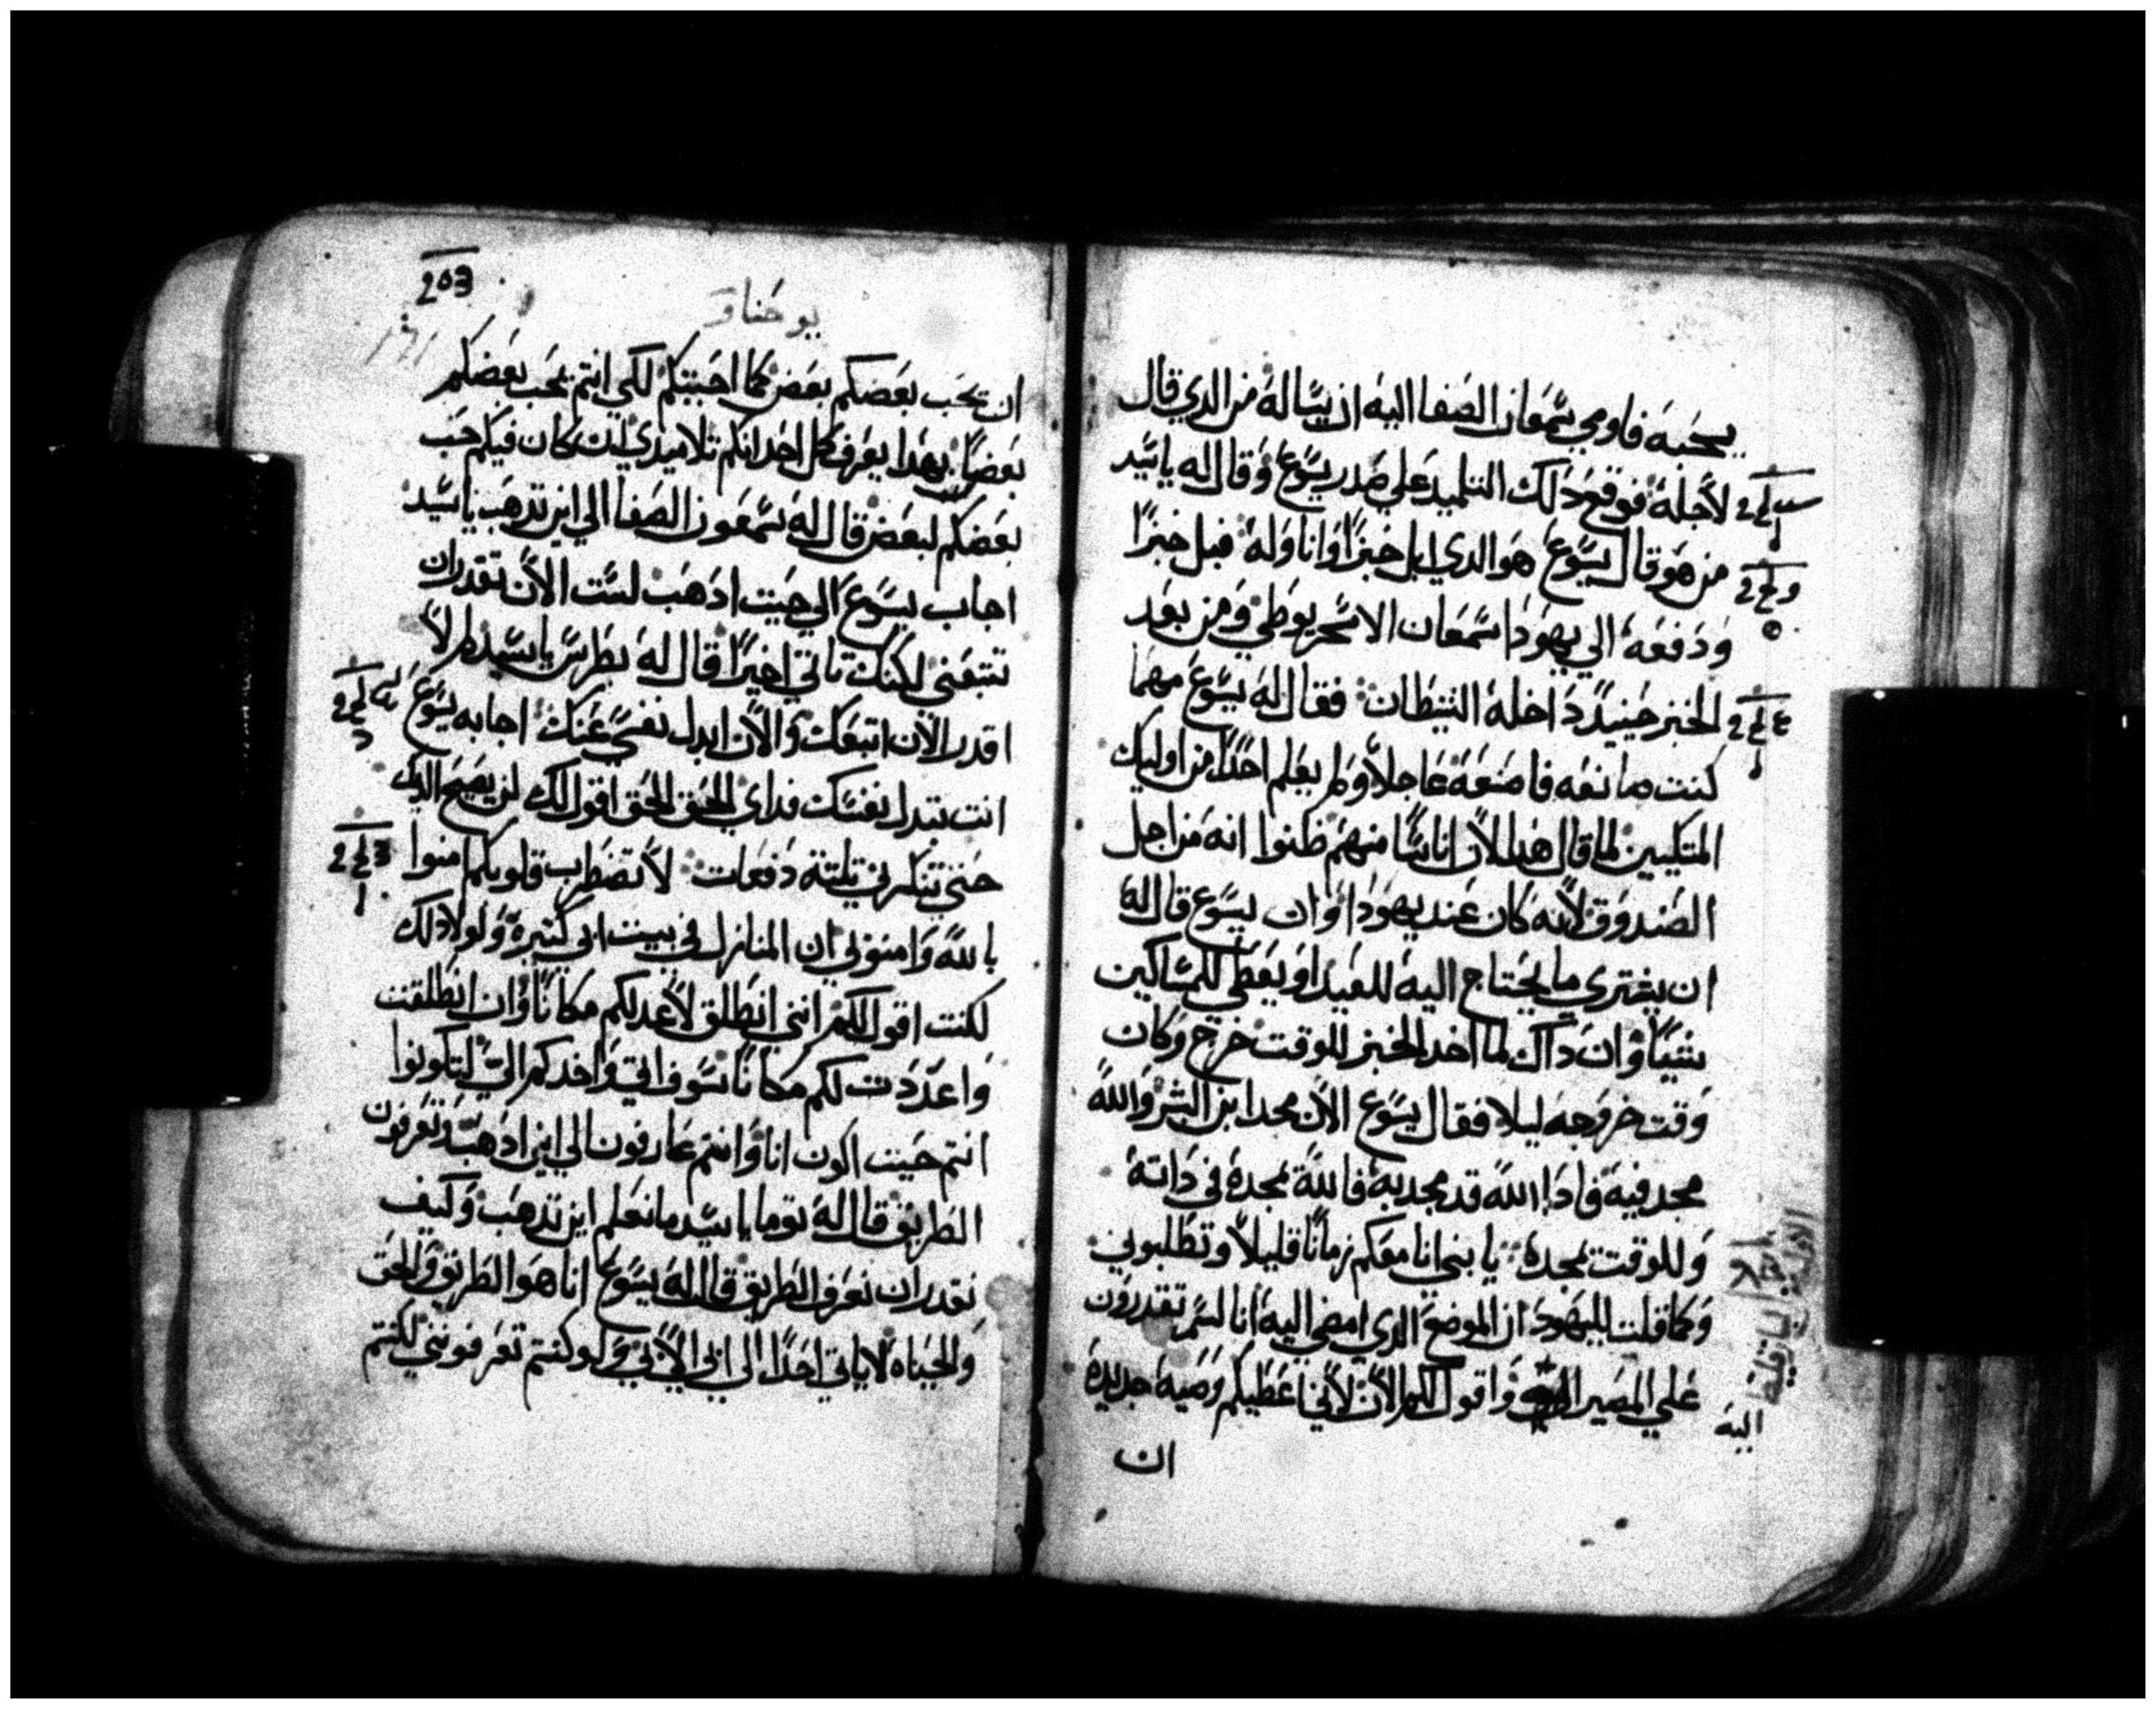 يحبه فاومي شمعان الصفا اليه ان يساله من الدي قال
لاجله فوقع دلك التلميد علي صدر يسوع وقال له ياسيد
من هو قال يسوع هو الدي ابل خبزا وانا وله فبل خبزا
ودفعه الي يهودا سمعان الاسخريوطي ومن بعد
الخبز حينيد داخله الشيطان فقال له يسوع مهما
كنت صانعه فاصنعه عاجلا ولم يعلم احدا من اوليك
المتكيين لما قال هدا لان اناسا منهم ظنوا انه من اجل
الصندوق لانه كان عند يهودا وان يسوع قال له
ان يشتري ما يحتاج اليه للعيد او يعطي للمساكين
شيا وان داك لما اخد الخبز للوقت خرج وكان
وقت خروجه ليلا فقال يسوع الان مجد ابن البشر والله
مجد فيه فادا الله قد مجد به فالله يمجده في داته
وللوقت يمجده يا بني انا معكم زمانا قليلا وتطلبوني
وكما قلت لليهود ان الموضع الدي امضي اليه انا لستم تقدرون
علي المصير واقول لكم الان لاني اعطيكم وصيه جديدة
اليه
ان
203
يوحنا
ان تحب بعضكم بعض كما احببتكم لكي انتم يحب بعضكم
بعضا بهدا يعرف كل احد انكم تلاميدي ان كان فيكم حب
بعضكم لبعض قال له سمعون الصفا الي اين تدهب ياسيد
اجاب يسوع الي حيت ادهب لست الان تقدر ان
تتبعني لكنك تاتي اخيرا قال له بطرس ياسيد لم لا
اقدر الان اتبعك والان ابدل نفسي عنك اجابه يسوع
انت تبدل نفسك فداي الحق الحق اقول لك لن يصيح الديك
حتي تنكرني تلتة دفعات لا تضطرب قلوبكم امنوا
بالله وامنوا بي ان المنازل في بيت ابي كتيره ولولا دلك
لكنت اقول لكم انني انطلق لاعد لكم مكانا وان انطلقت
واعددت لكم مكانا سوف اتي واخدكم الي لتكونوا
انتم حيت اكون انا وانتم عارفون الي اين ادهب وتعرفون
الطريق قال له توما ياسيد ما نعلم اين تدهب وكيف
نقدر ان نعرف الطريق قال له يسوع انا هو الطريق والحق
والحياه لا ياتي احدا الي ابي الا بي لو كنتم تعرفونني لكنتم